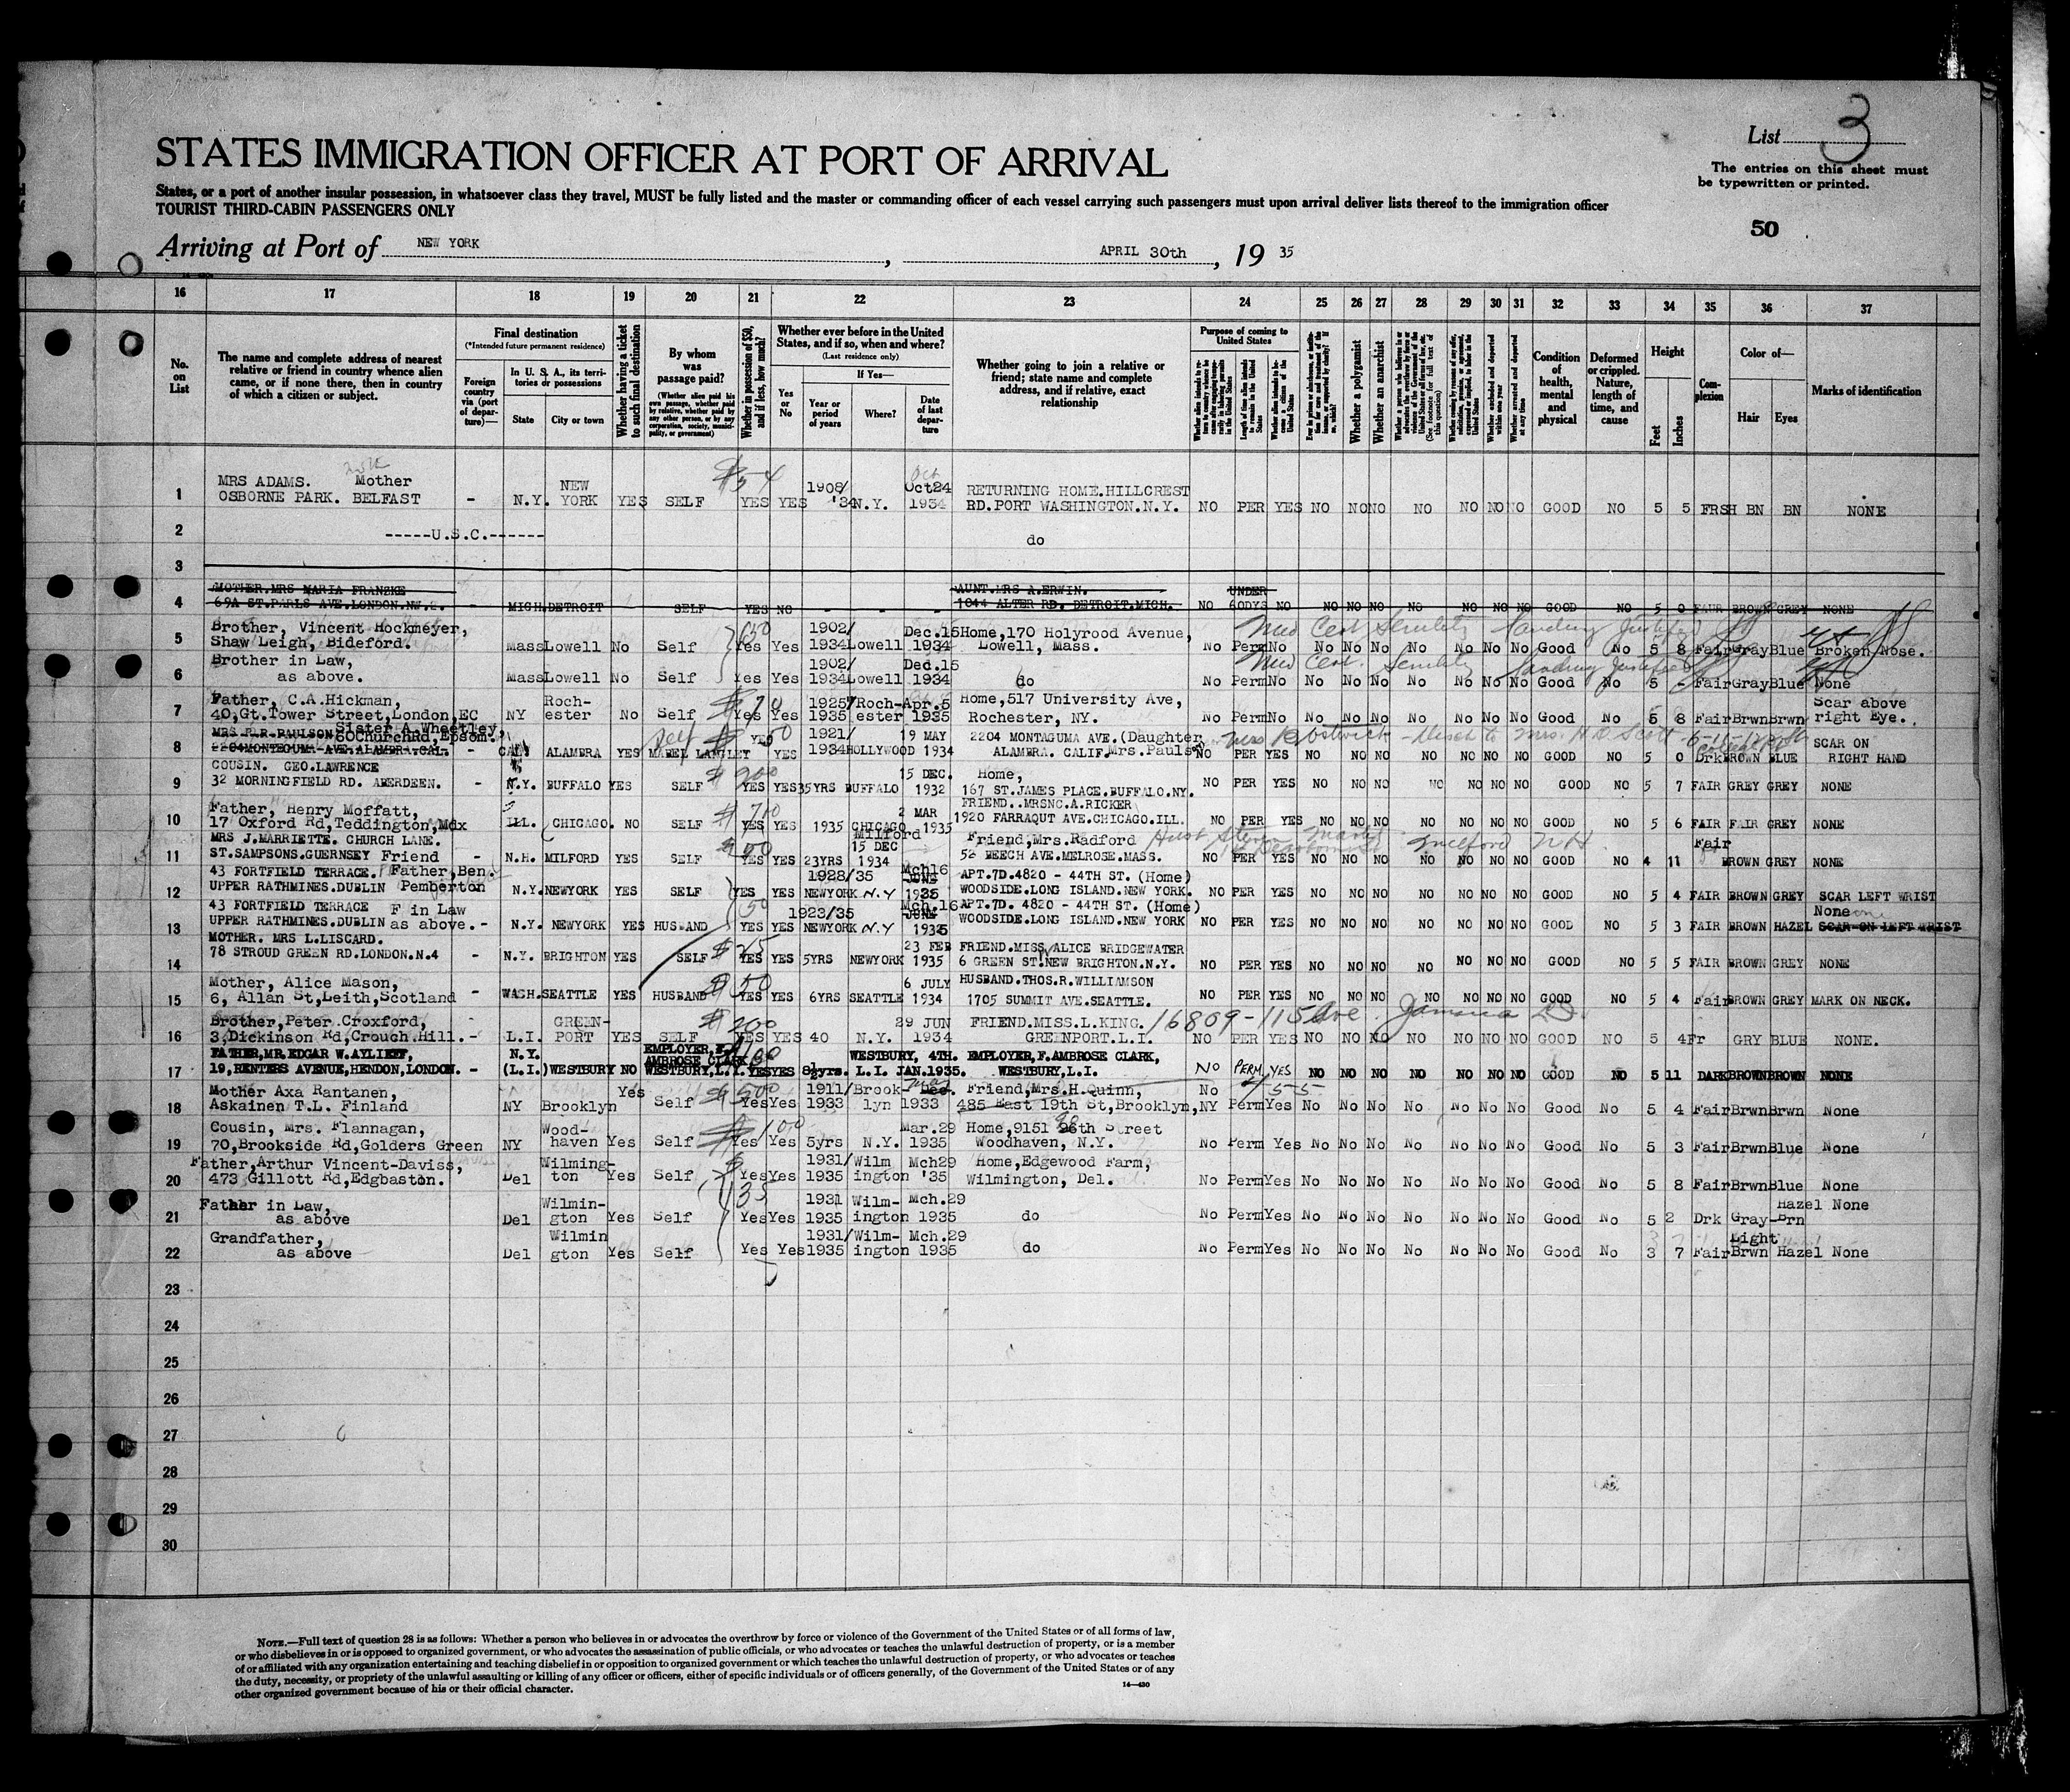 List 3
STATES IMMIGRATION OFFICER AT PORT OF ARRIVAL
The entries on this sheet must
be typewritten or printed.
States, or a port of another insular possession, in whatsoever class they travel, MUST be fully listed and the master or commanding officer of each vessel carrying such passengers must upon arrival deliver lists thereof to the immigration officer
TOURIST THIRD-CABIN PASSENGERS ONLY
50
Arriving at Port of NEW YORK , APRIL 30th , 19 35
16 17 18 19 20 21 22 23 24 25 26 27 28 29 30 31 32 33 34 35 36 37
No. on List
The name and complete address of nearest relative or friend in country whence alien came, or if none there, then in country of which a citizen or subject.
Final destination
(*Intended future permanent residence)
Foreign country via (port of departure)—
In U. S. A., its territories or possessions
State
City or town
Whether having a ticket to such final destination
By whom was passage paid?
(Whether alien paid his own passage, whether paid by relative, whether paid by any other person, or by any corporation, society, municipality, or government)
Whether in possession of $50, and if less, how much?
Whether ever before in the United States, and if so, when and where?
(Last residence only)
Yes or No
If Yes—
Year or period of years
Where?
Date of last departure
Whether going to join a relative or friend; state name and complete address, and if relative, exact relationship
Purpose of coming to United States
Length of time alien intends to remain in the United States
Whether a polygamist
Whether an anarchist
Condition of health, mental and physical
Deformed or crippled. Nature, length of time, and cause
Height
Feet
Inches
Complexion
Color of—
Hair
Eyes
Marks of identification
1 MRS ADAMS. Mother
OSBORNE PARK. BELFAST - N.Y. NEW YORK YES SELF $54 YES YES 1908/'34 N.Y. Oct24 1934 RETURNING HOME.HILLCREST
RD.PORT WASHINGTON.N.Y. NO PER YES NO NO NO NO NO NO NO GOOD NO 5 5 FRSH BN BN NONE
2 -----U.S.C.------ do
3
4 MOTHER.MRS MARIA FRANZKE
69A ST.PAULS AVE.LONDON.NW.2. - MICH.DETROIT SELF YES NO - - - AUNT.MRS A.ERWIN.
1044 ALTER RD. DETROIT.MICH. NO UNDER 60DYS NO NO NO NO NO NO NO NO GOOD NO 5 0 FAIR BROWN GREY NONE
5 Brother, Vincent Hockmeyer,
Shaw Leigh, Bideford. Mass Lowell No Self Yes Yes 1902/1934 Lowell Dec.15 1934 Home,170 Holyrood Avenue,
Lowell, Mass. Med Cert Senility Landing Justified
No Perm No No No No No No No No Good No 5 8 Fair Gray Blue Broken Nose.
6 Brother in Law,
as above. Mass Lowell No Self Yes Yes 1902/1934 Lowell Dec.15 1934 do Med Cert. Senility Landing Justified
No Perm No No No No No No No No Good No 5 Fair Gray Blue None
7 Father, C.A.Hickman,
40,Gt.Tower Street,London,EC NY Rochester No Self $70 Yes Yes 1925/1935 Rochester Apr.5 1935 Home,517 University Ave,
Rochester, NY. No Perm No No No No No No No No Good No 5 8 Fair Brwn Brwn Scar above right Eye.
8 MRS P.R.PAULSON Sister A.Wheetley,
60Church Rd,Epsom.
2204MONTEGUMA AVE.ALAMBRA.CAL. - CAL. ALAMBRA YES MABEL LANGLEY Self $50 YES YES 1921/1934 HOLLYWOOD 19 MAY 1934 2204 MONTAGUMA AVE.(Daughter
ALAMBRA. CALIF.Mrs.Paulson NO PER YES NO NO NO NO NO NO NO GOOD NO 5 0 Drk BROWN BLUE SCAR ON RIGHT HAND
9 COUSIN. GEO.LAWRENCE
32 MORNINGFIELD RD. ABERDEEN. - N.Y. BUFFALO YES SELF $200 YES YES 35YRS BUFFALO 15 DEC. 1932 Home,
167 ST.JAMES PLACE.BUFFALO.NY. NO PER YES NO NO NO NO NO NO NO GOOD NO 5 7 FAIR GREY GREY NONE
10 Father, Henry Moffatt,
17 Oxford Rd,Teddington,Mdx ILL. CHICAGO. NO SELF YES YES 1935 CHICAGO 2 MAR 1935 FRIEND..MRSNC.A.RICKER
1920 FARRAQUT AVE.CHICAGO.ILL. NO PER YES NO NO NO NO NO NO NO GOOD NO 5 6 FAIR FAIR GREY NONE
11 MRS J.MARRIETTE. CHURCH LANE.
ST.SAMPSONS.GUERNSEY Friend - N.H. MILFORD YES SELF YES YES 23YRS Milford 15 DEC 1934 Friend,Mrs.Radford
52 BEECH AVE.MELROSE.MASS. Milford N.H.
NO PER YES NO NO NO NO NO NO NO GOOD NO 4 11 Fair BROWN GREY NONE
12 43 FORTFIELD TERRACE. Father,Ben.
UPPER RATHMINES.DUBLIN Pemberton N.Y. NEWYORK YES SELF YES YES 1928/35 NEWYORK N.Y Mch16 JUNE 1935 APT.7D.4820 - 44TH ST. (Home)
WOODSIDE.LONG ISLAND.NEW YORK. NO PER YES NO NO NO NO NO NO NO GOOD NO 5 4 FAIR BROWN GREY SCAR LEFT WRIST
13 43 FORTFIELD TERRACE F in Law
UPPER RATHMINES.DUBLIN as above.- N.Y. NEWYORK YES HUSBAND 50 YES YES 1923/35 NEWYORK N.Y Mch.16 JUNE 1935 APT.7D. 4820 - 44TH ST. (Home)
WOODSIDE.LONG ISLAND.NEW YORK NO PER YES NO NO NO NO NO NO NO GOOD NO 5 3 FAIR BROWN HAZEL None SCAR ON LEFT WRIST
14 MOTHER. MRS L.LISCARD.
78 STROUD GREEN RD.LONDON.N.4 - N.Y. BRIGHTON YES SELF $25 YES YES 5YRS NEWYORK 23 FEB 1935 FRIEND.MISS ALICE BRIDGEWATER
6 GREEN ST.NEW BRIGHTON.N.Y. NO PER YES NO NO NO NO NO NO NO GOOD NO 5 5 FAIR BROWN GREY NONE
15 Mother, Alice Mason,
6, Allan St,Leith,Scotland - WASH.SEATTLE YES HUSBAND $50 YES YES 6YRS SEATTLE 6 JULY 1934 HUSBAND.THOS.R.WILLIAMSON
1705 SUMMIT AVE.SEATTLE. NO PER YES NO NO NO NO NO NO NO GOOD NO 5 4 Fair BROWN GREY MARK ON NECK.
16 Brother,Peter Croxford,
3,Dickinson Rd,Crouch Hill.- L.I. GREENPORT YES SELF $200 YES YES 40 N.Y. 29 JUN 1934 FRIEND.MISS.L.KING. 16809-115 Ave. Jamaica
GREENPORT.L.I. NO PER YES NO NO NO NO NO NO NO GOOD NO 5 4 Fr GRY BLUE NONE.
17 FATHER,MR.EDGAR W.AYLIEFF,
19,RENTERS AVENUE,HENDON,LONDON. - N.Y. (L.I.) WESTBURY NO EMPLOYER,F. AMBROSE CLARK WESTBURY,L.I. $100 YES YES 8½yrs. WESTBURY, L.I. 4TH. JAN.1935. EMPLOYER,F.AMBROSE CLARK,
WESTBURY,L.I. No PERM. YES NO NO NO NO NO NO NO GOOD NO 5 11 DARK BROWN BROWN NONE
18 Mother Axa Rantanen,
Askainen T.L. Finland NY Brooklyn Yes Self $500 Yes Yes 1911/1933 Brooklyn Dec. 1933 Friend,Mrs.H.Quinn,
485 East 19th St,Brooklyn,NY No Perm Yes No No No No No No No Good No 5 4 Fair Brwn Brwn None
19 Cousin, Mrs. Flannagan,
70,Brookside Rd,Golders Green NY Woodhaven Yes Self $100 Yes Yes 5yrs N.Y. Mar.29 1935 Home,9151 96th Street
Woodhaven, N.Y. No Perm Yes No No No No No No No Good No 5 3 Fair Brwn Blue None
20 Father,Arthur Vincent-Daviss,
473 Gillott Rd,Edgbaston. Del Wilmington Yes Self $ Yes Yes 1931/1935 Wilmington Mch29 '35 Home,Edgewood Farm,
Wilmington, Del. No Perm Yes No No No No No No No Good No 5 8 Fair Brwn Blue None
21 Father in Law,
as above Del Wilmington Yes Self 135 Yes Yes 1931 1935 Wilmington Mch.29 1935 do No Perm Yes No No No No No No No Good No 5 2 Drk Gray-Brn Hazel None
22 Grandfather,
as above Del Wilmington Yes Self Yes Yes 1931/1935 Wilmington Mch.29 1935 do No Perm Yes No No No No No No No Good No 3 7 Fair Light Brwn Hazel None
23
24
25
26
27
28
29
30
NOTE.—Full text of question 28 is as follows: Whether a person who believes in or advocates the overthrow by force or violence of the Government of the United States or of all forms of law,
or who disbelieves in or is opposed to organized government, or who advocates the assassination of public officials, or who advocates or teaches the unlawful destruction of property, or is a member
of or affiliated with any organization entertaining and teaching disbelief in or opposition to organized government or which teaches the unlawful destruction of property, or who advocates or teaches
the duty, necessity, or propriety of the unlawful assaulting or killing of any officer or officers, either of specific individuals or of officers generally, of the Government of the United States or of any
other organized government because of his or their official character.
14—430